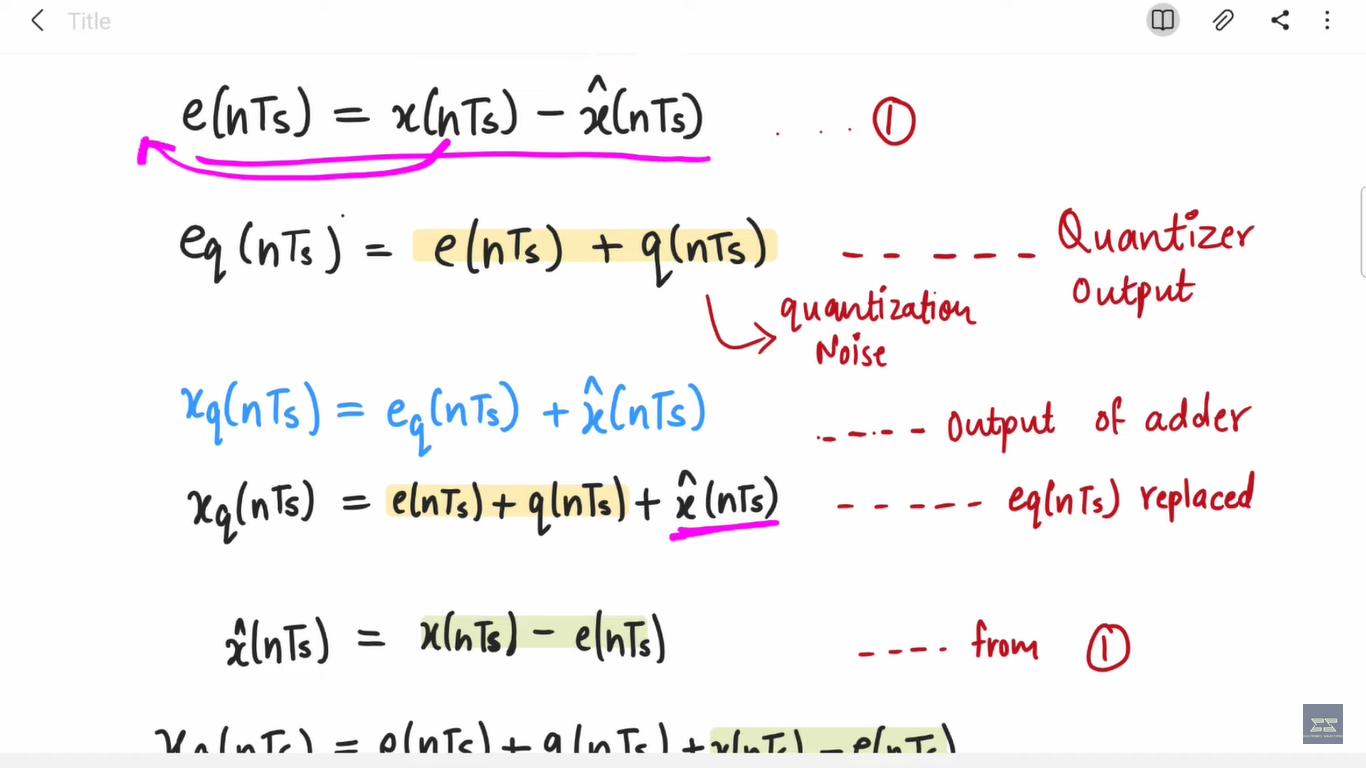 Title
e(nTs) = x(nTs) - x̂(nTs) . . . ①
eq(nTs) = e(nTs) + q(nTs) - - - - - - Quantizer Output
quantization Noise
xq(nTs) = eq(nTs) + x̂(nTs) - - - - - Output of adder
xq(nTs) = e(nTs) + q(nTs) + x̂(nTs) - - - - - - eq(nTs) replaced
x̂(nTs) = x(nTs) - e(nTs) - - - - from ①
xq(nTs) = e(nTs) + q(nTs) + x(nTs) - e(nTs)